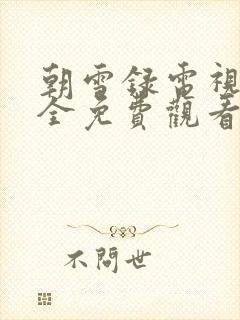 朝雪錄電視
全免費觀看
不問世